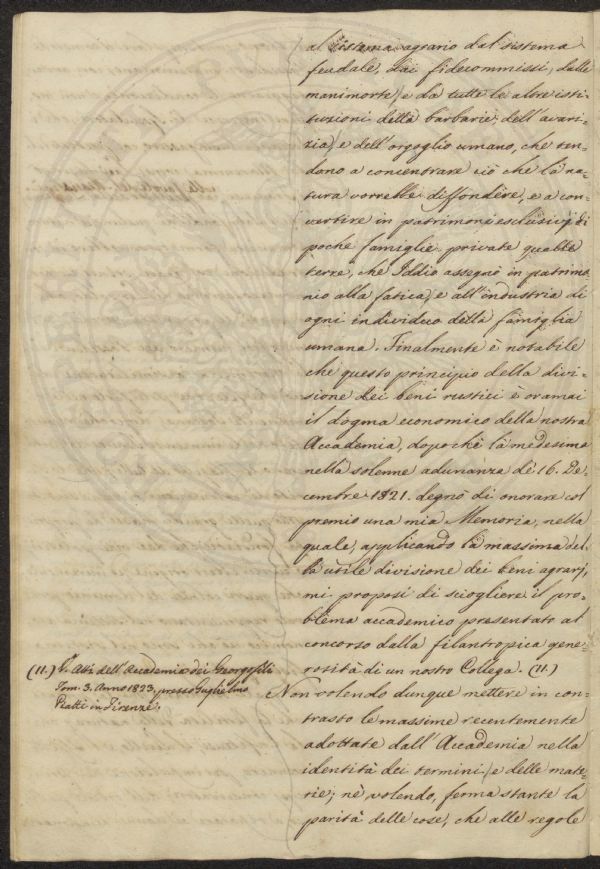 al sistema agrario dal sistema
feudale, dai fidecommissi, dalle
manimorte, e da tutte le altre isti-
tuzioni della barbarie, dell'avari-
zia, e dell'orgoglio umano, che ten-
dono a concentrare ciò che la na-
tura vorrebbe diffondere, e a con-
vertire in patrimonj esclusivi di
poche famiglie private quelle
terre, che Iddio assegnò in patrimo-
nio alla fatica, e all'industria di
ogni individuo della famiglia
umana. Finalmente è notabile
che questo principio della divi-
sione dei beni rustici è oramai
il dogma economico della nostra
Accademia, dopochè la medesima
nella solenne adunanza de' 16. De-
cembre 1821. degnò di onorare col
premio una mia Memoria, nella
quale, applicando la massima del-
la utile divisione dei beni agrarj,
mi proposi di sciogliere il pro-
blema accademico presentato al
concorso dalla filantropica gene-
rosità di un nostro Collega. (11.)
(11.) V. Atti dell'Accademia dei Georgofili
Tom. 3. Anno 1823, presso Guglielmo
Piatti in Firenze.
Non volendo dunque mettere in con-
trasto le massime recentemente
adottate dall'Accademia nella
identità dei termini, e delle mate-
rie; nè volendo, ferma stante la
parità delle cose, che alle regole